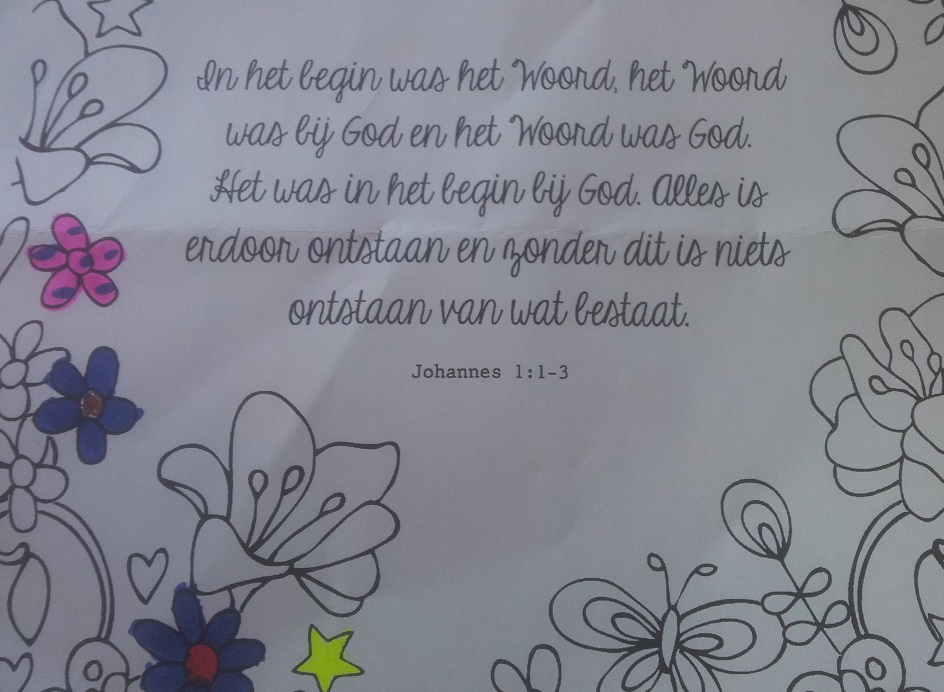 In het begin was het Woord, het Woord
was bij God en het Woord was God.
Het was in het begin bij God. Alles is
erdoor ontstaan en zonder dit is niets
ontstaan van wat bestaat.
Johannes 1:1-3